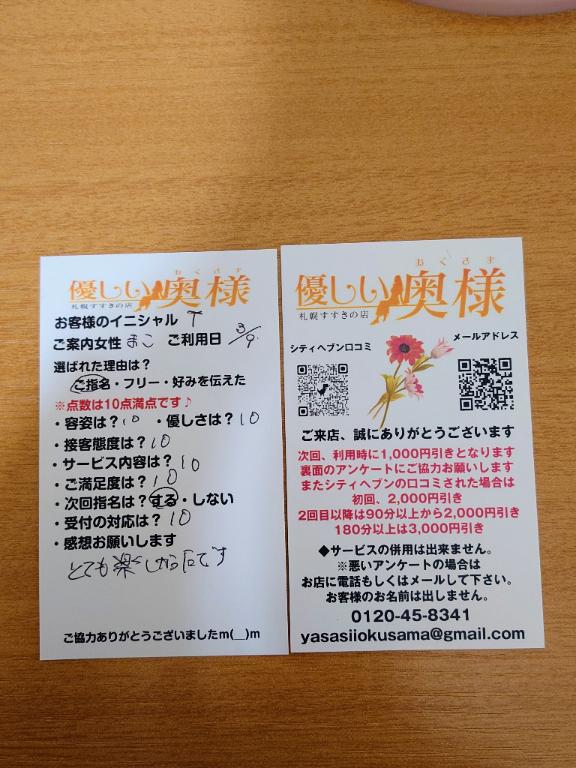 おくさま
優しい奥様
札幌すすきの店
お客様のイニシャル T
ご案内女性 まこ ご利用日 3/9
選ばれた理由は?
ご指名・フリー・好みを伝えた
※点数は10点満点です♪
・容姿は?10 ・優しさは?10
・接客態度は?10
・サービス内容は?10
・ご満足度は?10
・次回指名は?する・しない
・受付の対応は?10
・感想お願いします
とても楽しかったです
ご協力ありがとうございましたm(__)m
おくさま
優しい奥様
札幌すすきの店
シティヘブン口コミ
メールアドレス
ご来店、誠にありがとうございます
次回、利用時に1,000円引きとなります
裏面のアンケートにご協力お願いします
またシティヘブンの口コミされた場合は
初回、2,000円引き
2回目以降は90分以上から2,000円引き
180分以上は3,000円引き
◆サービスの併用は出来ません。
※悪いアンケートの場合は
お店に電話もしくはメールして下さい。
お客様のお名前は出しません。
0120-45-8341
yasasiiokusama@gmail.com